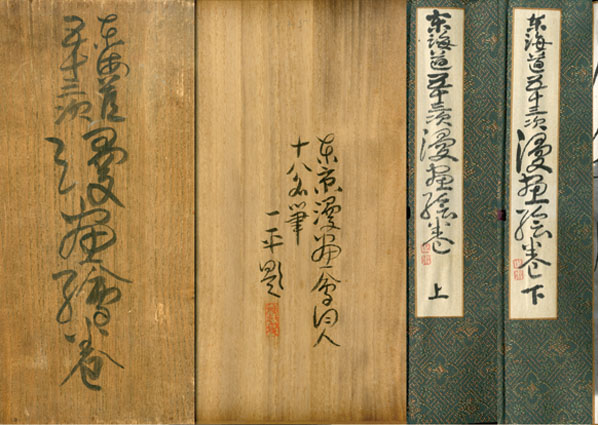 東海道
五十三次
漫画絵巻
東京漫画会同人
十八名筆
一平題
東海道五十三次漫画絵巻
上
東海道五十三次漫画絵巻
下